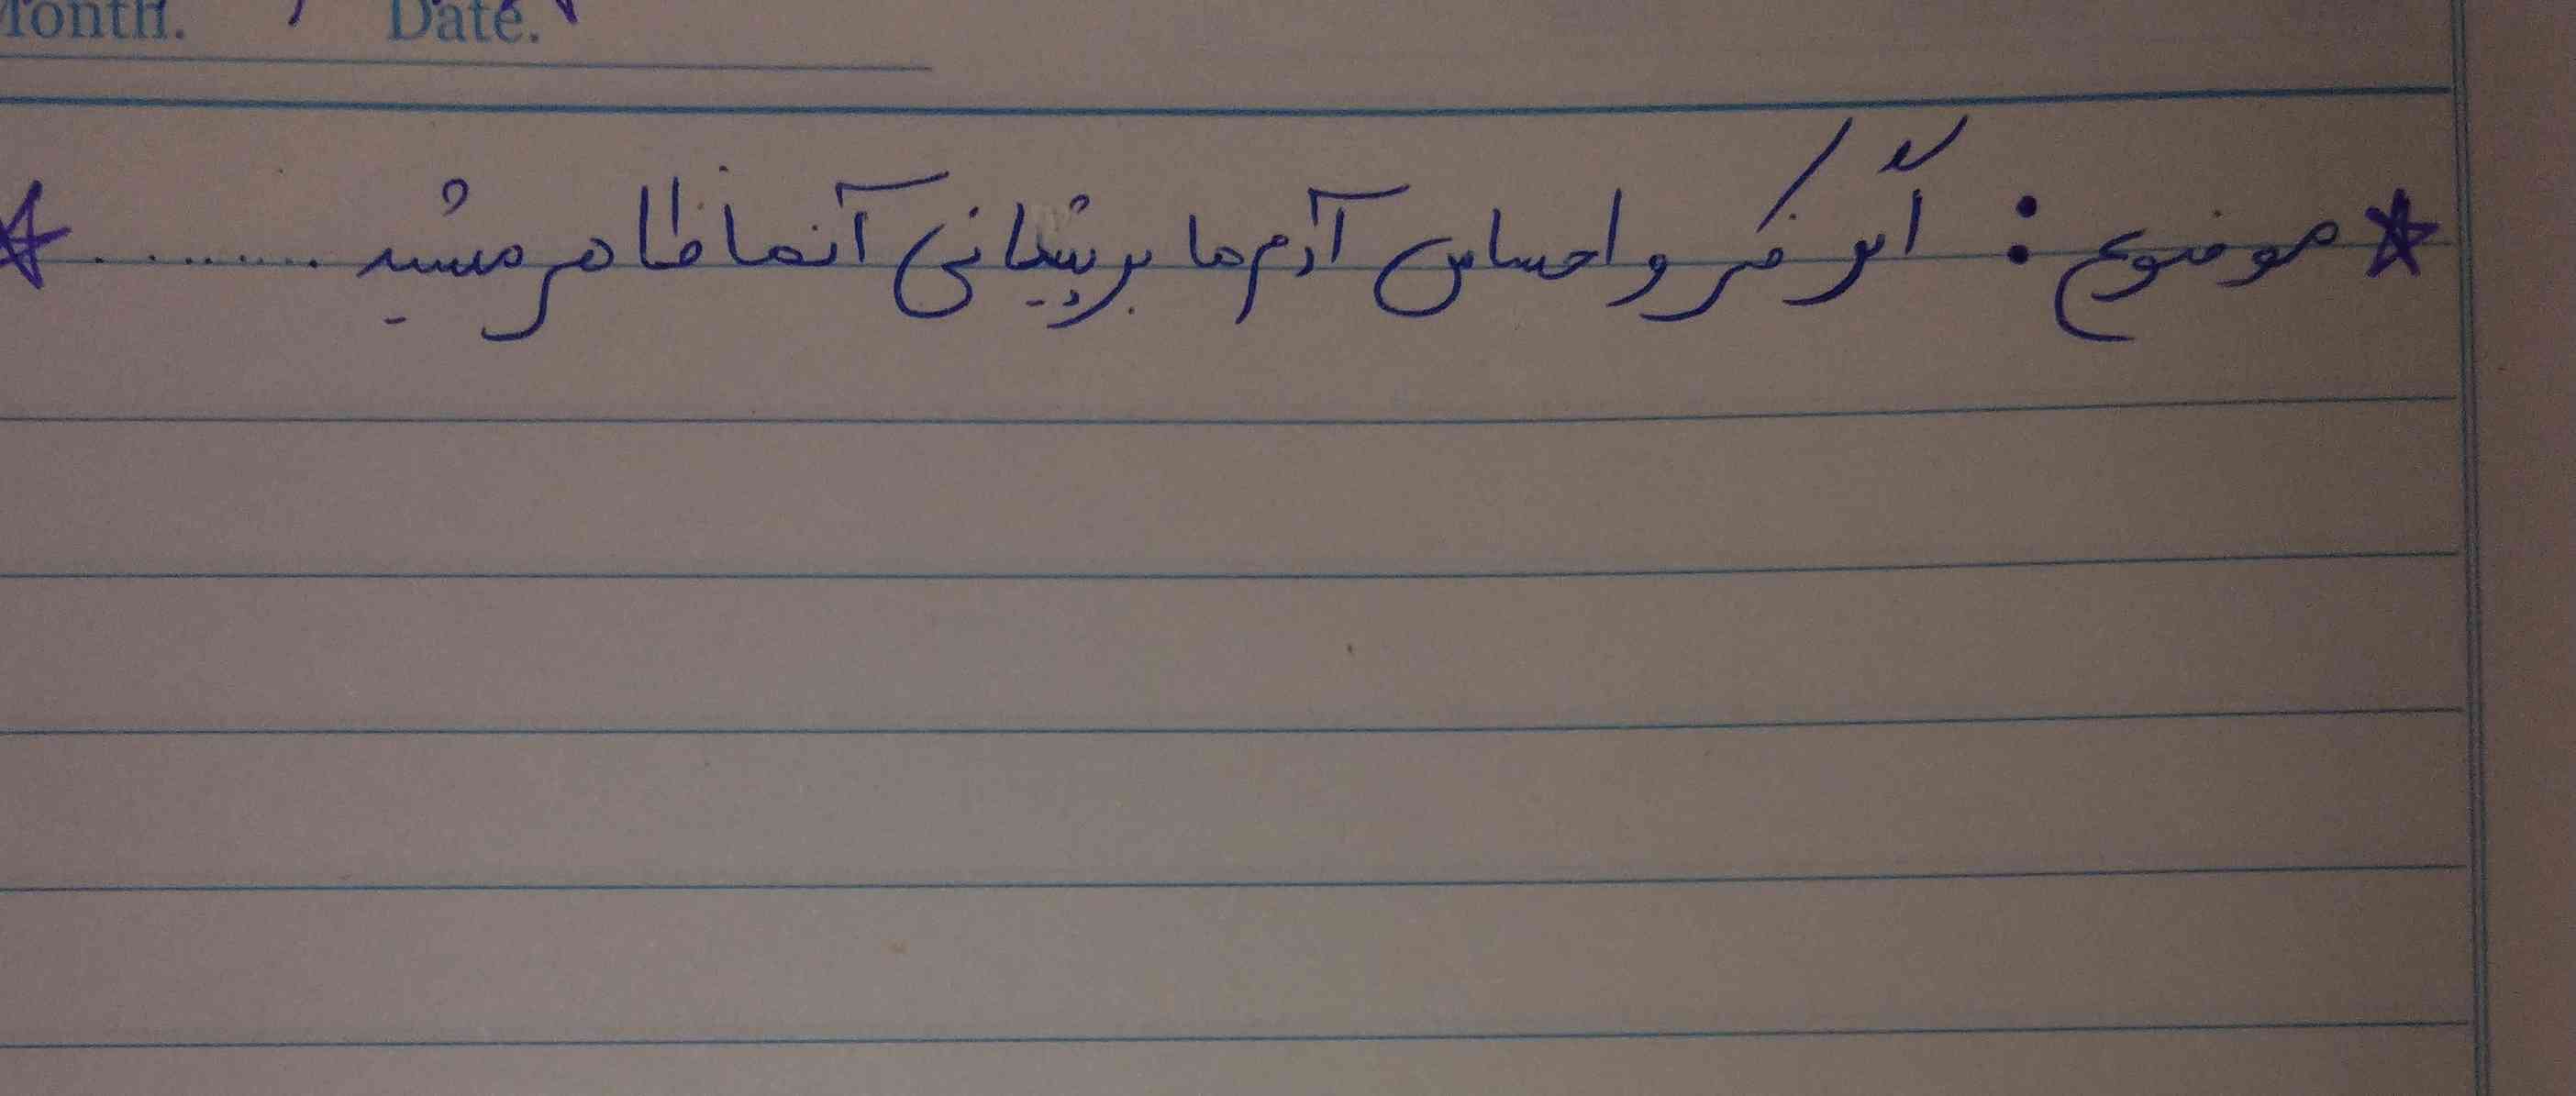 Month. Date.
موضوع : اگر فکر و احساس آدم‌ها بر پیشانی آنها ظاهر میشد ..........